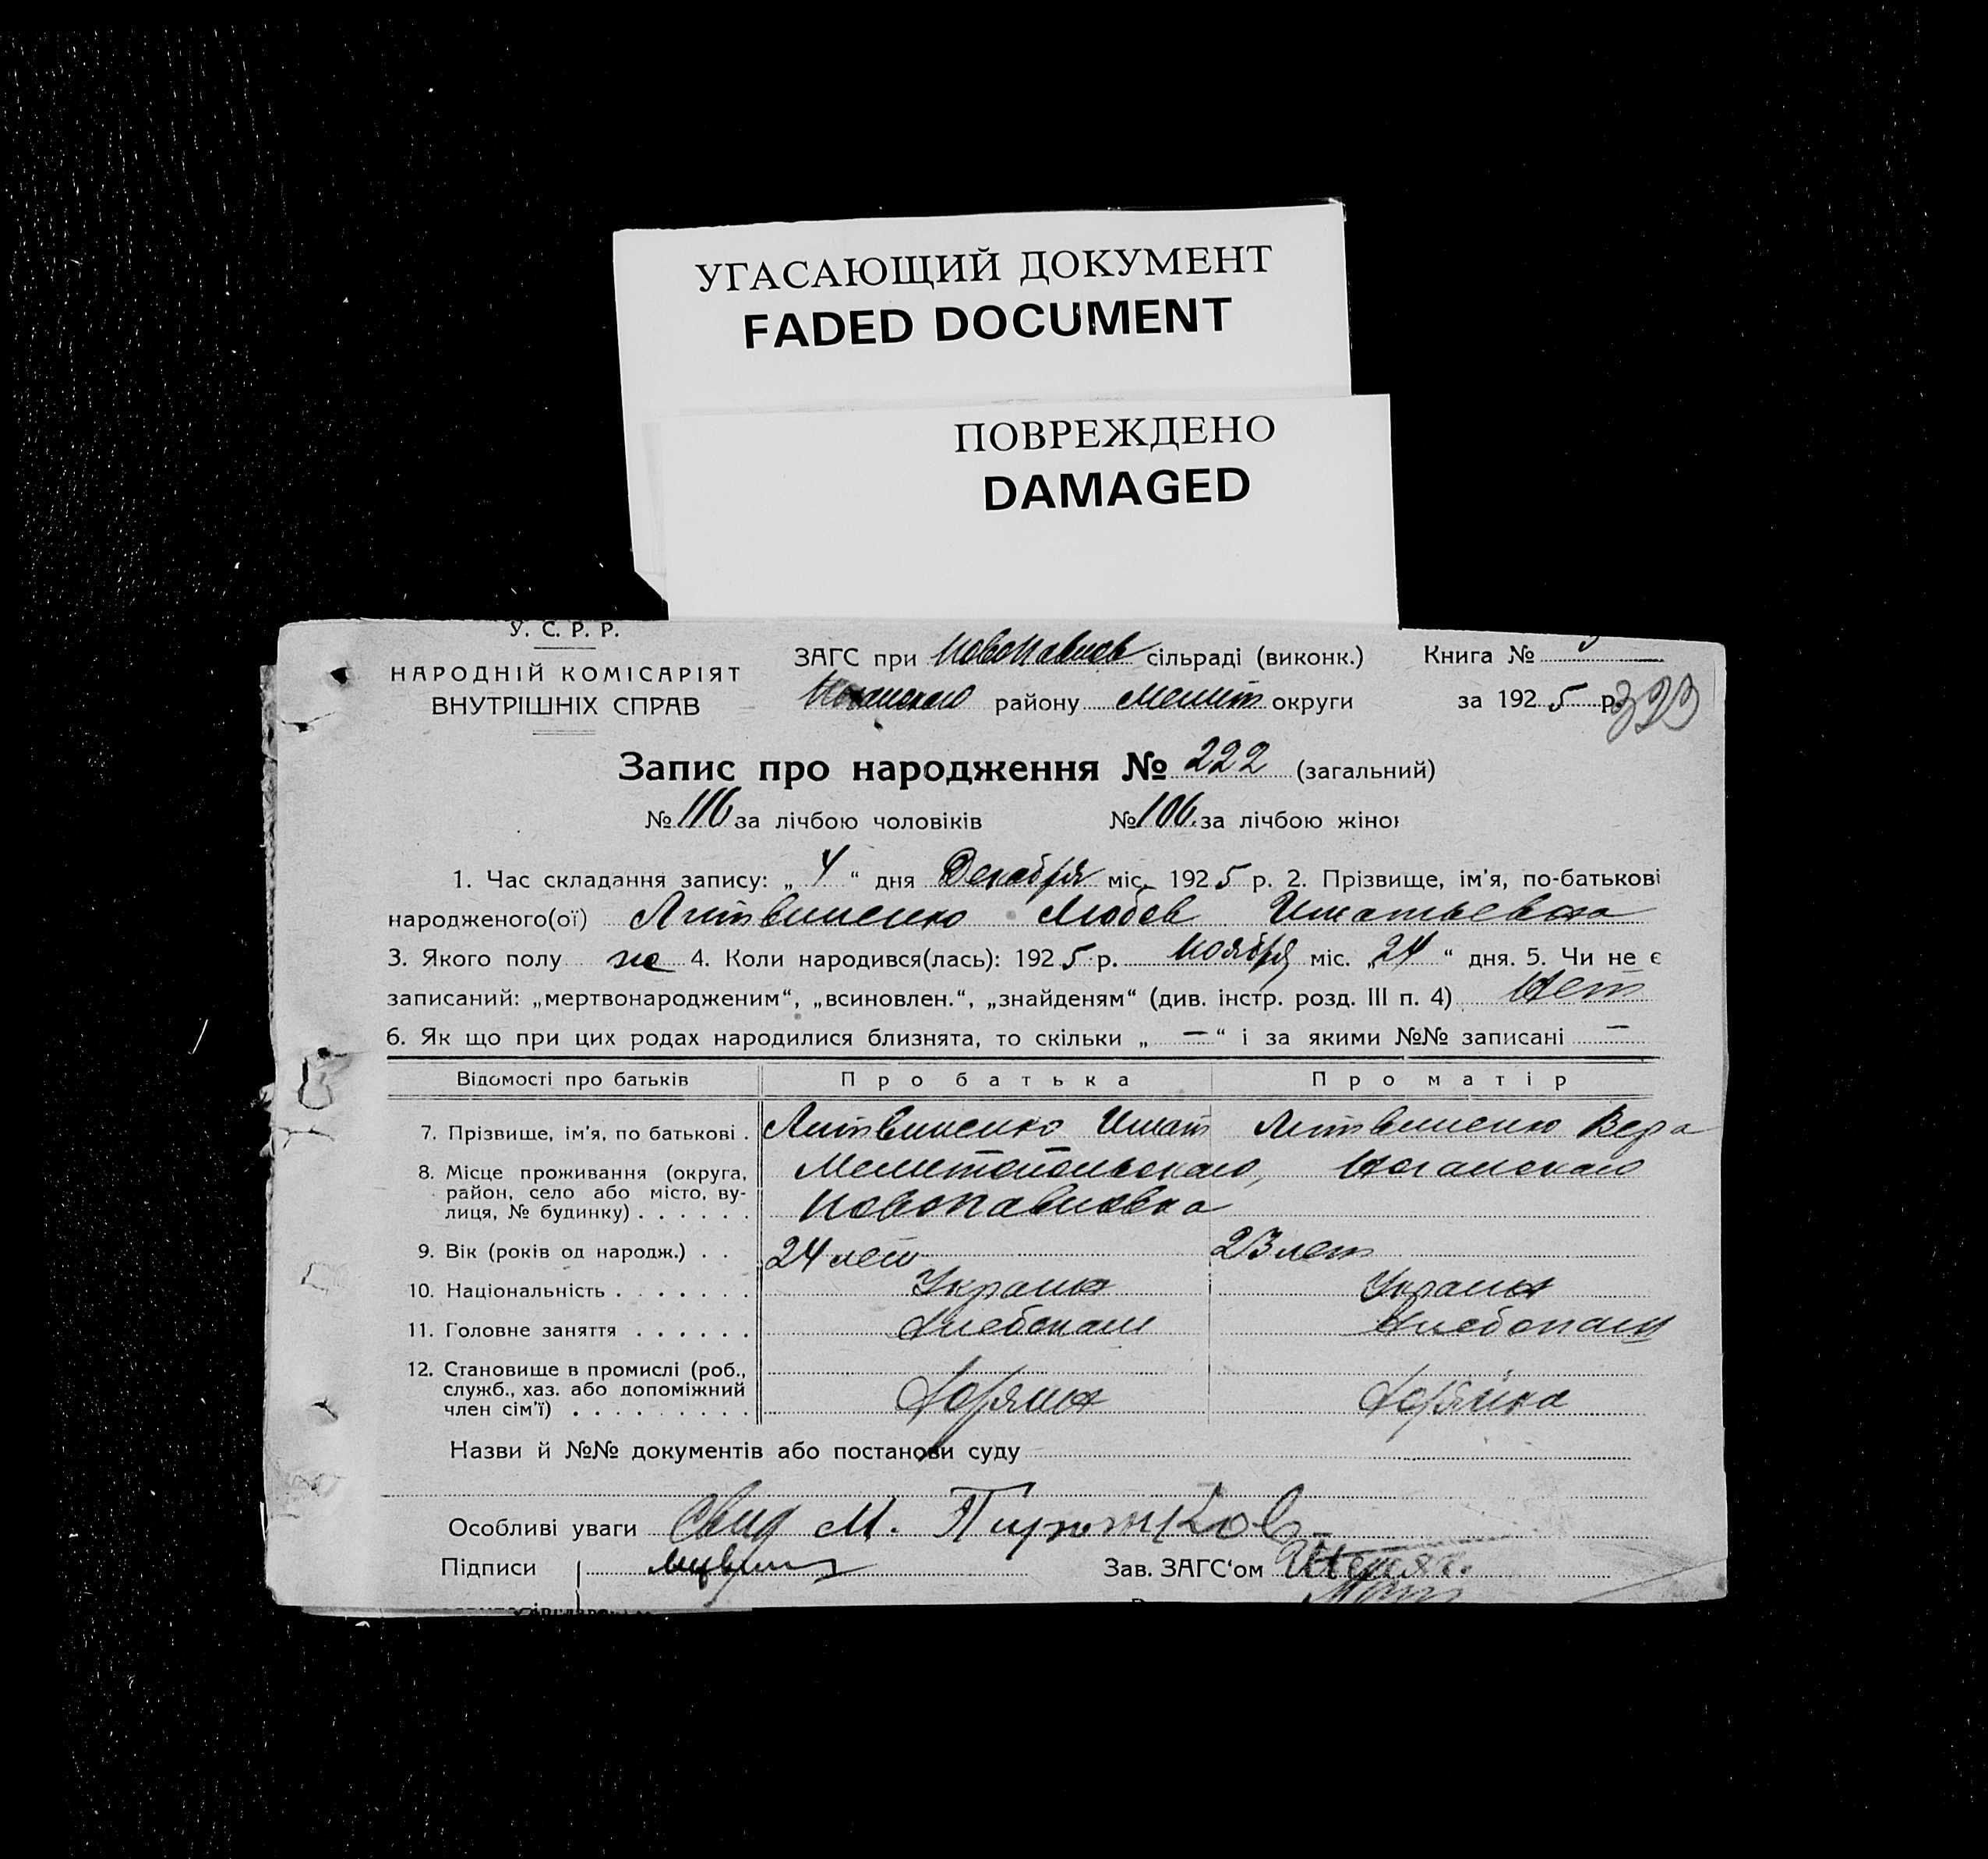 УГАСАЮЩИЙ ДОКУМЕНТ
FADED DOCUMENT
ПОВРЕЖДЕНО
DAMAGED
У. С. Р. Р.
НАРОДНІЙ КОМІСАРІЯТ
ВНУТРІШНІХ СПРАВ
ЗАГС при Новопавлов сільраді (виконк.)
району Мелит округи
Книга №
за 1925 р.
Запис про народження № 222 (загальний)
№ 116 за лічбою чоловіків № 106. за лічбою жінок
1. Час складання запису: „ 4 “ дня Декабря міс. 1925 р. 2. Прізвище, ім'я, по-батькові
народженого(ої) Литвиненко Любов Игнатьевна
3. Якого полу же 4. Коли народився(лась): 1925 р. ноября міс. „24“ дня. 5. Чи не є
записаний: „мертвонародженим“, „всиновлен.“, „знайденям“ (див. інстр. розд. III п. 4) Нет
6. Як що при цих родах народилися близнята, то скільки „ — “ і за якими №№ записані —
Відомості про батьків Про батька Про матір
7. Прізвище, ім'я, по батькові . Литвиненко Игнат Литвиненко Вера
8. Місце проживання (округа, Мелитопольскаго, Ноганскаго
район, село або місто, ву- Новопавловка
лиця, № будинку) . . . . . .
9. Вік (років од народж.) . . 24 лет 23 лет
10. Національність . . . . . . . Украин Украин
11. Головне заняття . . . . . . Хлебопаш Хлебопаш
12. Становище в промислі (роб.,
служб., хаз. або допоміжний
член сім'ї) . . . . . . . . .
Назви й №№ документів або постанови суду
Особливі уваги Свид М.
Підписи
Зав. ЗАГС‘ом